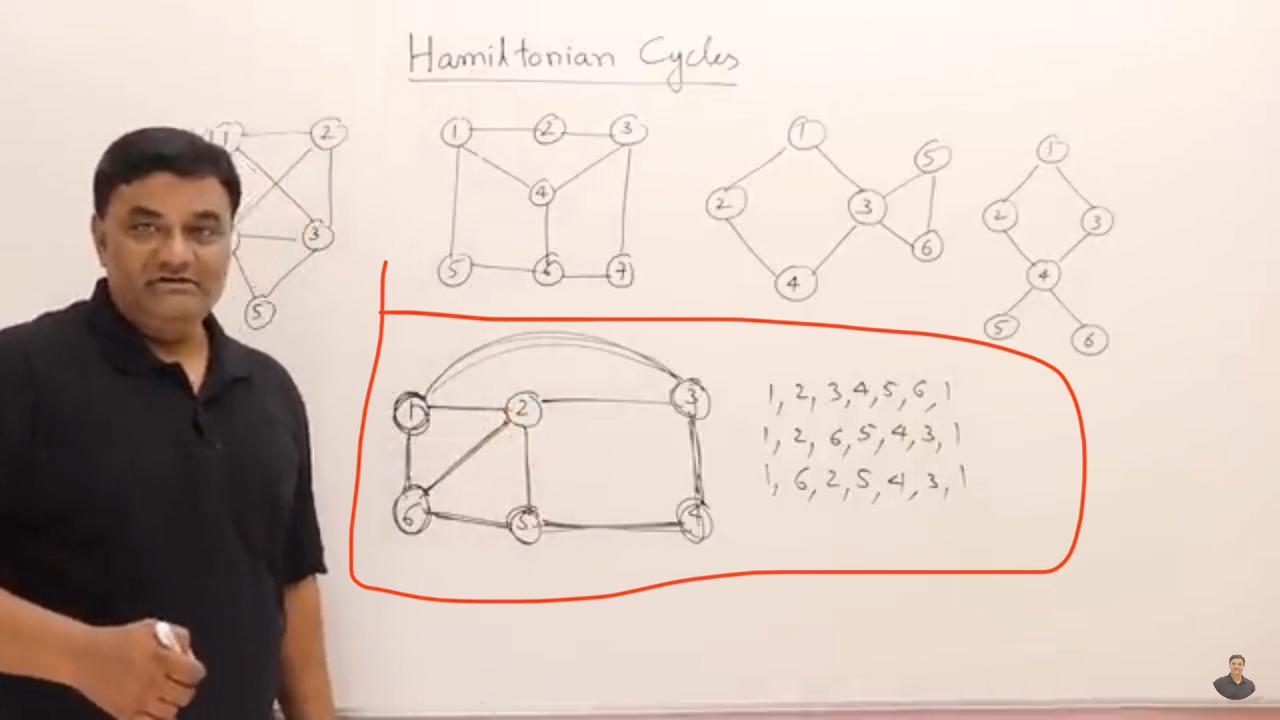 Hamiltonian Cycles
1 2 3
5
1 2 3
4
5 6 7
1
2 3
4
5
6
1
2 3
4
5 6
1 2 3
6 5 4
1, 2, 3, 4, 5, 6, 1
1, 2, 6, 5, 4, 3, 1
1, 6, 2, 5, 4, 3, 1